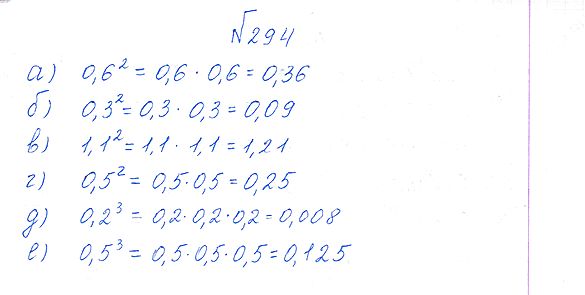 №294
а) 0,6² = 0,6 · 0,6 = 0,36
б) 0,3² = 0,3 · 0,3 = 0,09
в) 1,1² = 1,1 · 1,1 = 1,21
г) 0,5² = 0,5 · 0,5 = 0,25
д) 0,2³ = 0,2 · 0,2 · 0,2 = 0,008
е) 0,5³ = 0,5 · 0,5 · 0,5 = 0,125